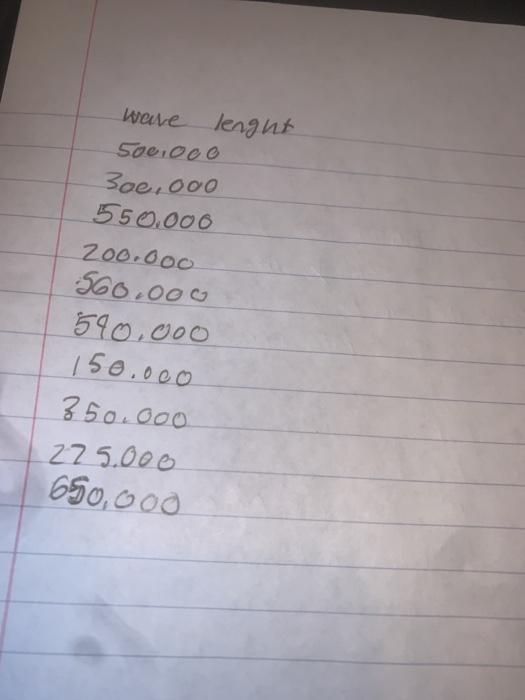 wave lenght
500,000
300,000
550,000
200.000
560,000
590,000
150.000
350.000
225.000
650,000